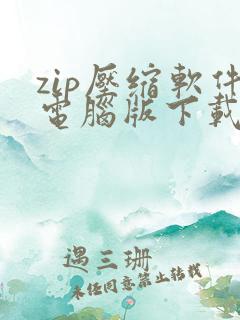 zip壓縮軟件
電腦版下載
遇三珊
未经同意禁止转载